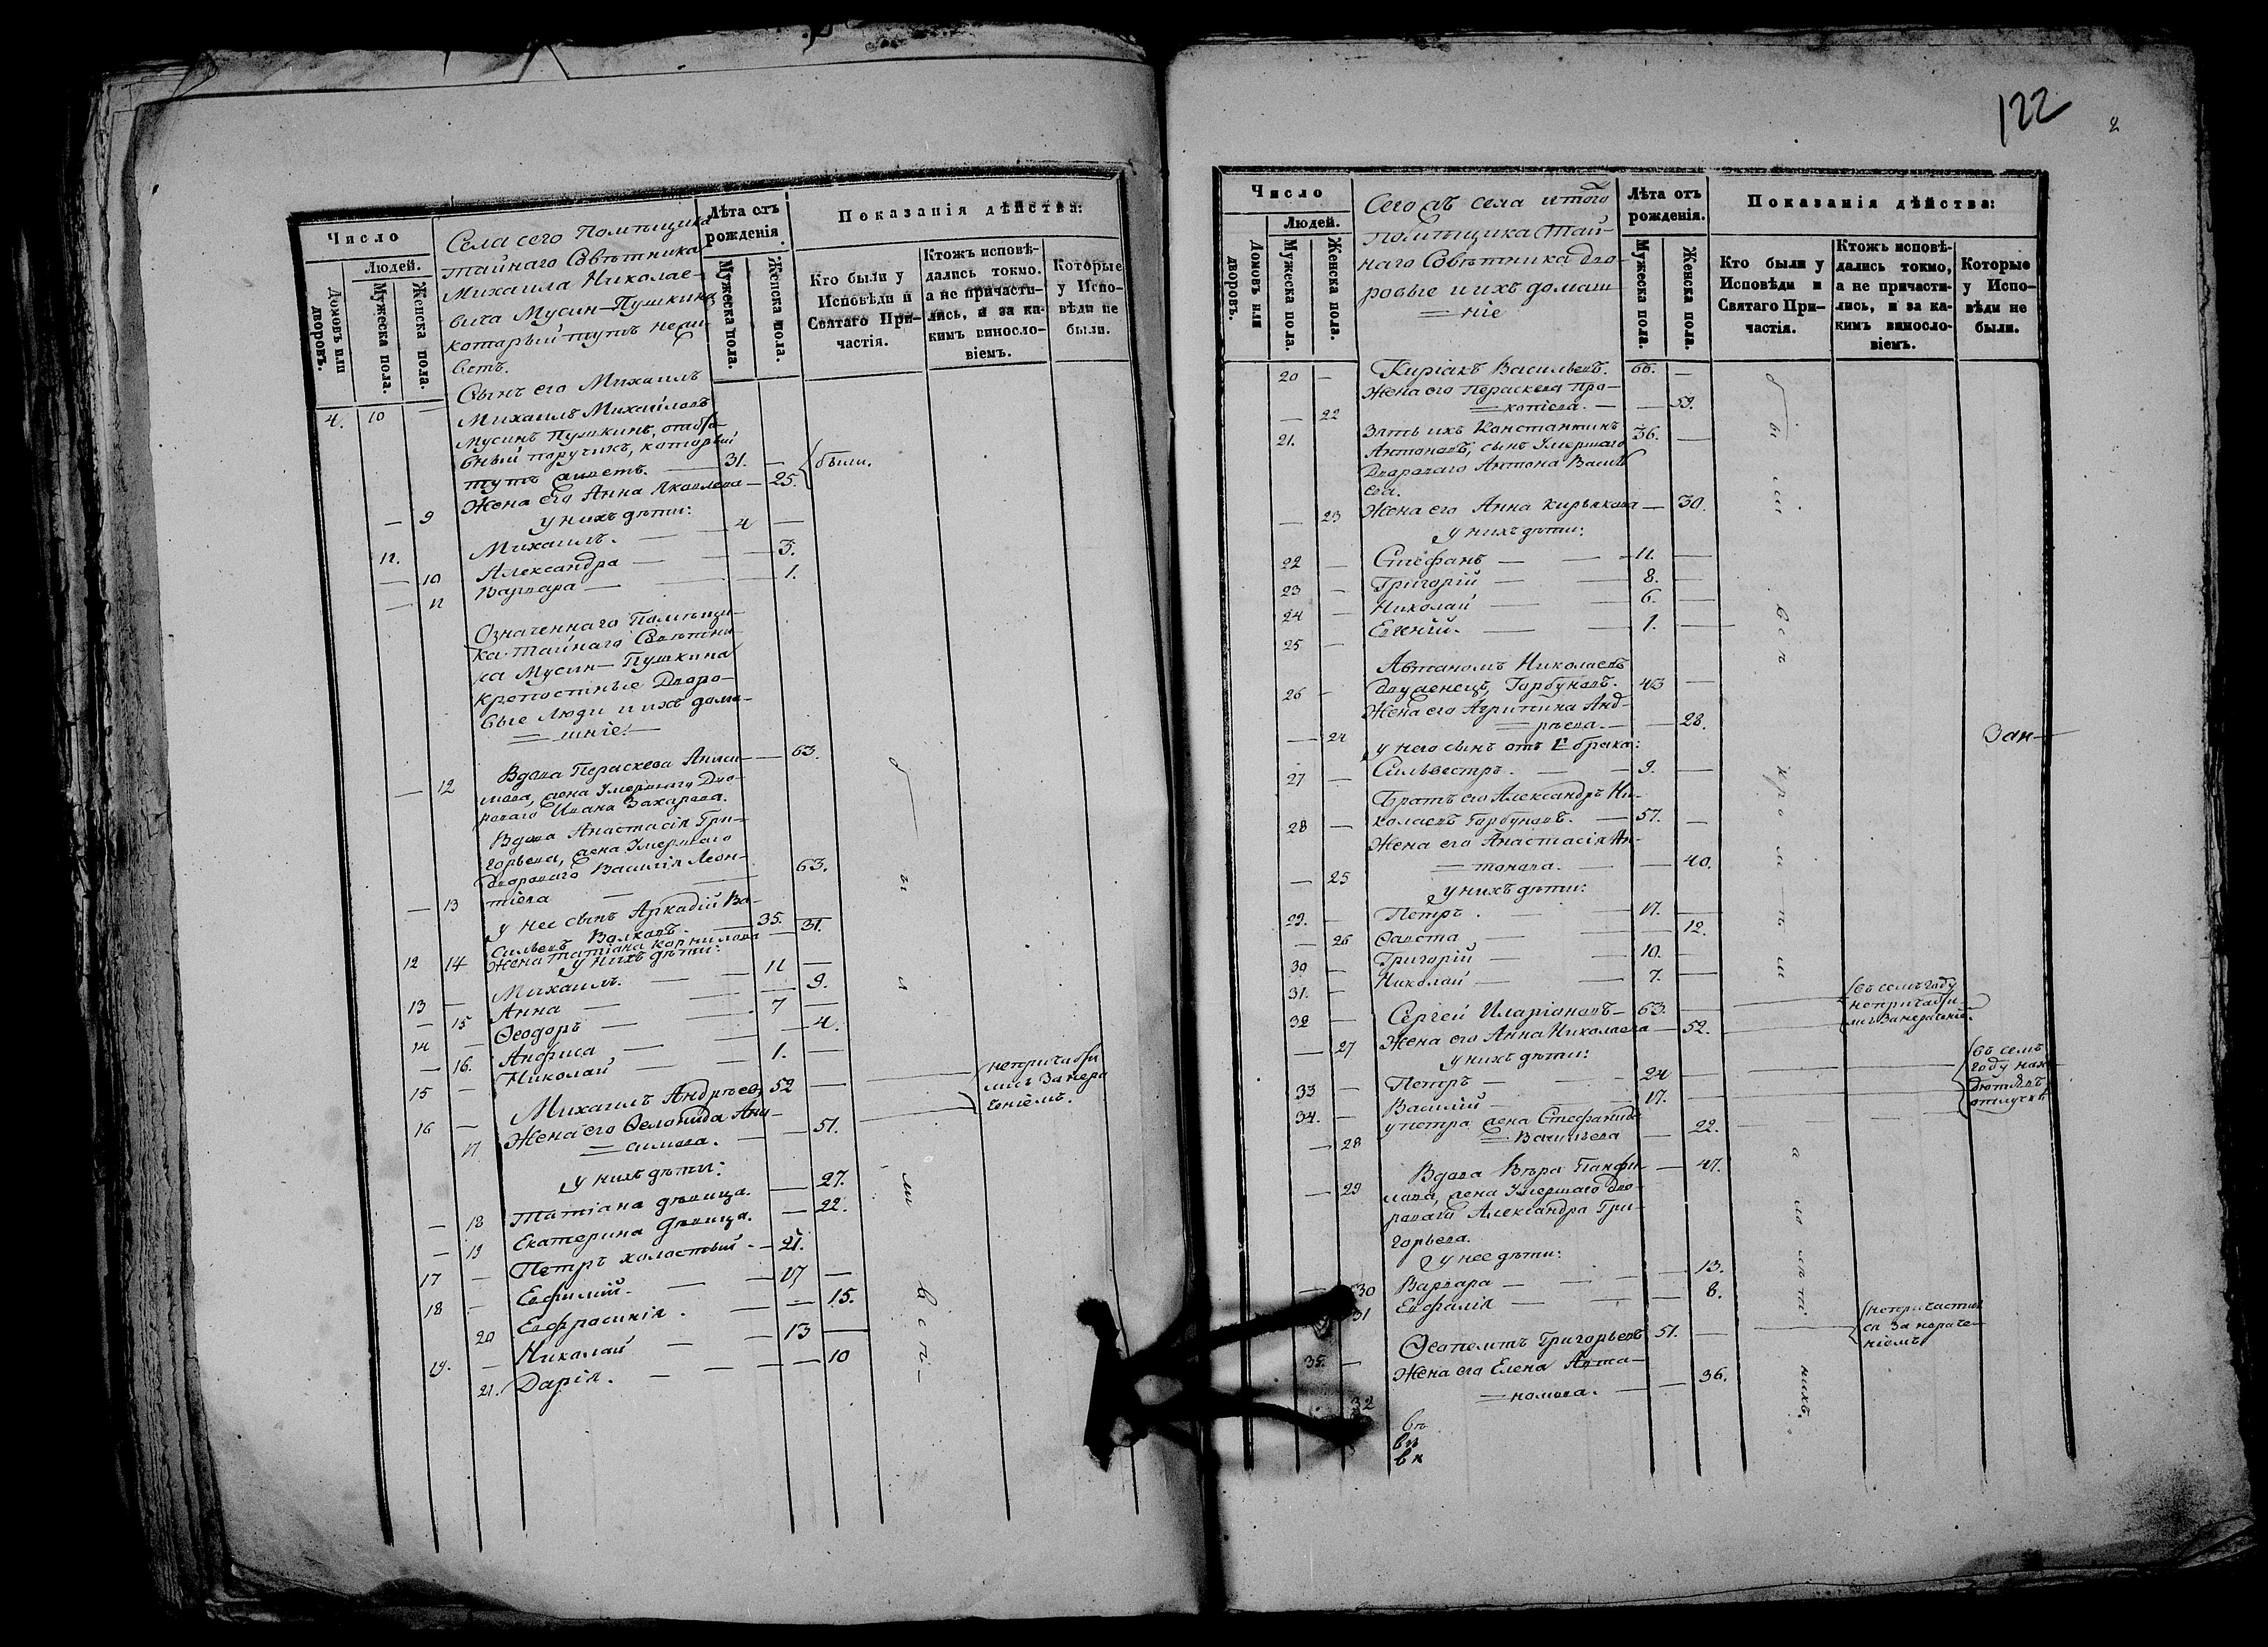 Число
Людей.
Домовъ или дворовъ.
Мужеска пола.
Женска пола.
Села сего Помѣщика
тайнаго Совѣтника
Михаила Николае-
вича Мусин-Пушкина
который тутъ не жи-
ветъ.
Лѣта отъ рожденія.
Мужеска пола.
Женска пола.
Показанія дѣйства:
Кто были у Исповѣди и Святаго При-
частія.
Ктожъ исповѣ-
дались токмо.
а не причасти-
лись, и за ка-
кимъ виносло-
віемъ.
Которые у Испо-
вѣди не были.
Сынъ его Михаилъ
4. 10 — Михаилъ Михайловъ
Мусинъ Пушкинъ, отста-
вный поручикъ, который
тутъ живетъ. — 31. — были.
— 9 Жена его Анна Яковлева — 25.
У нихъ дѣти:
11. Михаилъ. — 4 —
— 10 Александра — 3.
— 11 Варвара — 1.
Означеннаго Помѣщи-
ка тайнаго Совѣтни-
ка Мусин-Пушкина
крепостные Дворо-
вые люди и ихъ дома-
шніе:
— 12 Вдова Параскева Аниси- — 63.
мова, жена Умершаго Дво-
роваго Ивана Захарова.
Вдова Анастасія Гри-
горьева, жена Умершаго
Двороваго Василія Леон-
— 13 тіева — 63.
У нее сынъ Аркадій Ва-
12 сильевъ Волковъ. — 35. —
14 Жена Татіана Корнилова — 31.
У нихъ дѣти:
13 — Михаилъ. — 11 —
— 15 Анна — 9.
14 — Ѳеодоръ — 7 —
— 16. Анфиса — 4.
15 — Николай — 1. —
16 — Михаилъ Андрѣевъ 52 — непричасти
лись за нера
чніемъ.
17 Жена его Ѳеломида Ани-
симова. — 51.
У нихъ дѣти:
— 18 Татіана дѣвица. — 27.
— 19 Екатерина дѣвица. — 22.
17 — Петръ холостый — 21.
18 — Евфимій. — 17 —
20 Евфросинія. — 15.
19. — Николай — 13 —
21. Дарія. — 10
б ы л и в с ѣ
122
2
Число
Людей.
Домовъ или дворовъ.
Мужеска пола.
Женска пола.
Сего жъ села и того
помѣщика Тай-
наго Совѣтника дво-
ровые и ихъ домаш
ніе
Лѣта отъ рожденія.
Мужеска пола.
Женска пола.
Показанія дѣйства:
Кто были у Исповѣди и Святаго При-
частія.
Ктожъ исповѣ-
дались токмо,
а не причасти-
лись, и за ка-
кимъ виносло-
віемъ.
Которые у Испо-
вѣди не были.
20 — Киріакъ Васильевъ. 66. —
Жена его Параскева Про-
— 22 копіева. — 59.
21. Зять ихъ Константинъ 36. —
Антоновъ, сынъ Умершаго
Двороваго Антона Василь
ева.
— 23 Жена его Анна Кирьякова — 30.
У нихъ дѣти:
22 — Стефанъ — 11. —
23 — Григорій — 8. —
24 — Николай — 6. —
25 — Евгеній. — 1. —
Автаномъ Николаевъ
26 — Горбуновъ. 43 —
Жена его Агрипина Анд-
— 24 рѣева. — 28.
У него сынъ отъ 1го брака:
27 — Сильвестръ. — 9. —
Братъ его Александръ Ни-
28 — колаевъ Горбуновъ. — 57. —
Жена его Анастасія Ан-
— 25 тонова. — 40.
У нихъ дѣти:
29. — Петръ. — 17. —
— 26 Ѳавста — 12.
30 — Григорій — 10. —
31. — Николай — 7. —
32 — Сергей Иларіоновъ — 63. — въ семъ году
непричасти-
лись за нераченіе.
— 27 Жена его Анна Николаева — 52.
У нихъ дѣти:
33 — Петръ — 24 — въ семъ
году нахо
дятся въ
отпускѣ
34. — Василій — 17. —
У Петра жена Стефанида
— 28 Васильева — 22.
Вдова Вѣра Панфи- — 47.
— 29 лова, жена Умершаго дво-
роваго Александра Гри-
горьева.
У нее дѣти:
— 30 Варвара — 13.
31 Евфалія — 8.
35. — Ѳеопемтъ Григорьевъ 51. — непричастил
ся за нераче-
ніемъ
Жена его Елена Авта-
32 номова. — 36.
въ
въ
вк
Зан—
б ы л и в с ѣ к р о м ѣ
нихъ.